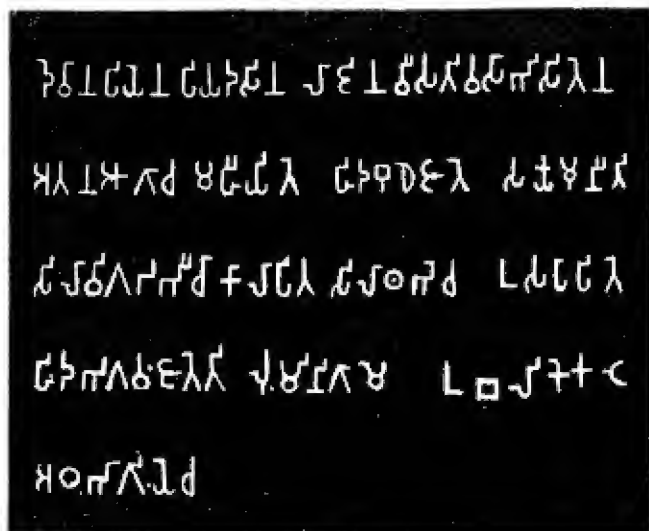 𑀤𑁂𑀯𑀸𑀦𑀁𑀧𑀺𑀬𑁂𑀦 𑀧𑀺𑀬𑀤𑀲𑀺𑀦 𑀮𑀸𑀚𑀺𑀦𑀯𑀻𑀲𑀢𑀺𑀯𑀲𑀸𑀪𑀺𑀲𑀺𑀢𑁂𑀦
𑀅𑀢𑀦𑀆𑀕𑀸𑀘 𑀫𑀳𑀻𑀬𑀺𑀢𑁂 𑀳𑀺𑀤𑀩𑀼𑀥𑁂𑀚𑀸𑀢𑁂 𑀲𑀓𑁆𑀬𑀫𑀼𑀦𑀻𑀢𑀺
𑀲𑀺𑀮𑀸𑀯𑀺𑀕𑀟𑀪𑀻𑀘𑀸𑀓𑀸𑀮𑀸𑀧𑀺𑀢 𑀲𑀺𑀮𑀸𑀣𑀪𑁂𑀘 𑀉𑀲𑀧𑀸𑀧𑀺𑀢𑁂
𑀳𑀺𑀤𑀪𑀕𑀯𑀁𑀚𑀸𑀢𑁂𑀢𑀺 𑀮𑀼𑀁𑀫𑀺𑀦𑀺𑀕𑀸𑀫𑁂 𑀉𑀩𑀮𑀺𑀓𑁂𑀓𑀝𑁂
𑀅𑀞𑀪𑀸𑀕𑀺𑀬𑁂𑀘